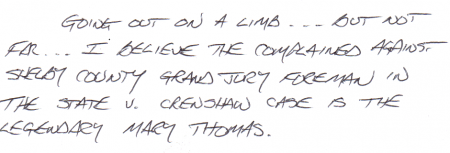 GOING OUT ON A LIMB... BUT NOT
FAR... I BELIEVE THE COMPLAINED AGAINST
SHELBY COUNTY GRAND JURY FOREMAN IN
THE STATE V. CRENSHAW CASE IS THE
LEGENDARY MARY THOMAS.